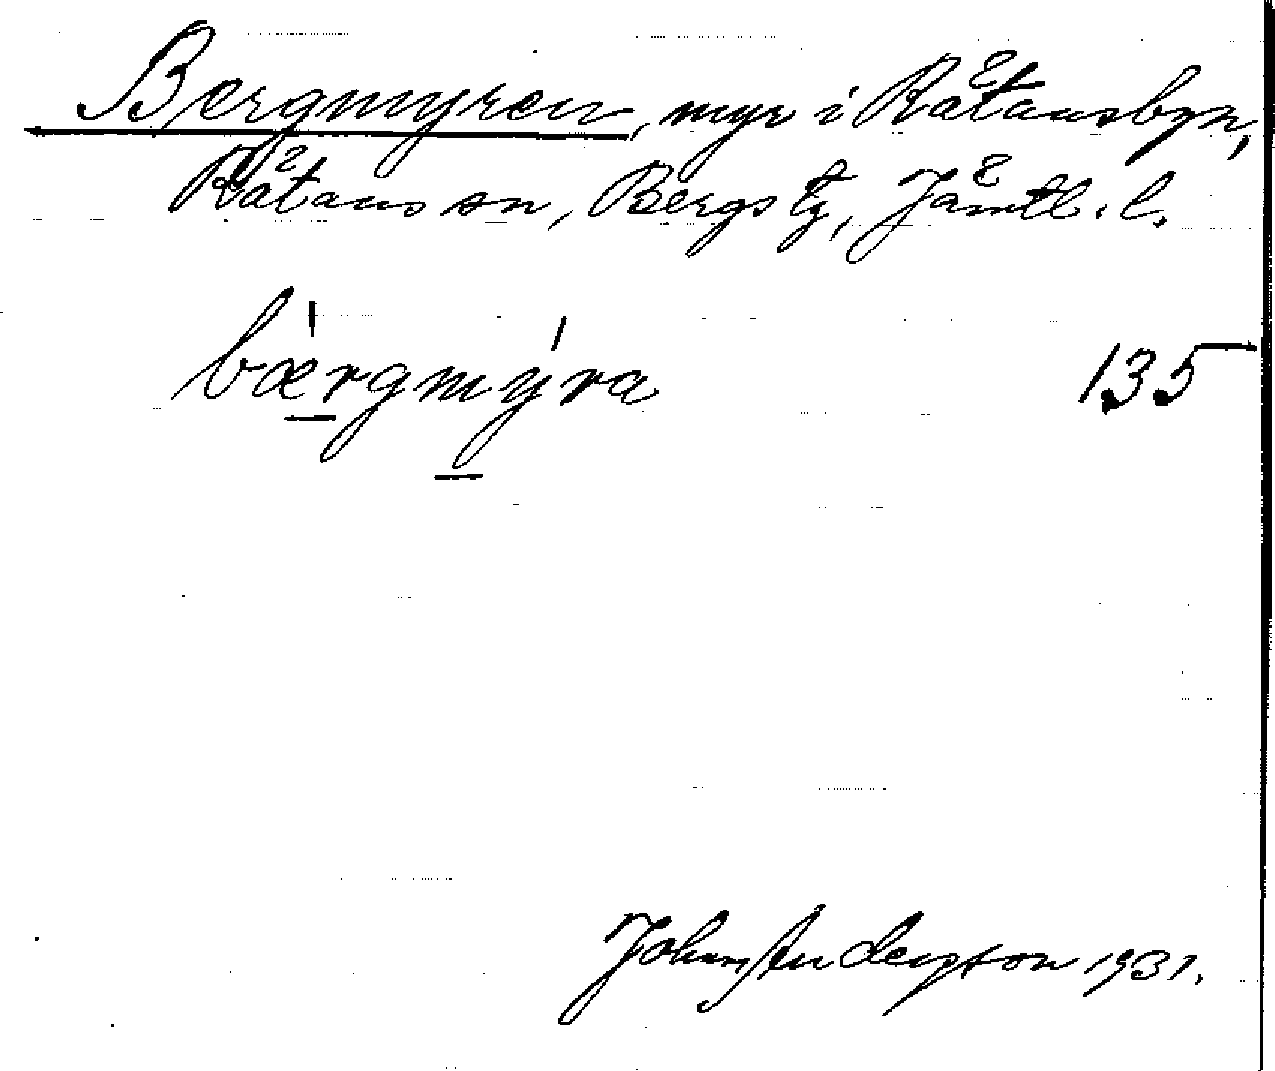 Bergmyren, myr i Rätansbyn,
Rätans sn, Bergs tg, Jämtl. l.
bærgmýra 135
John Andersson 1931.